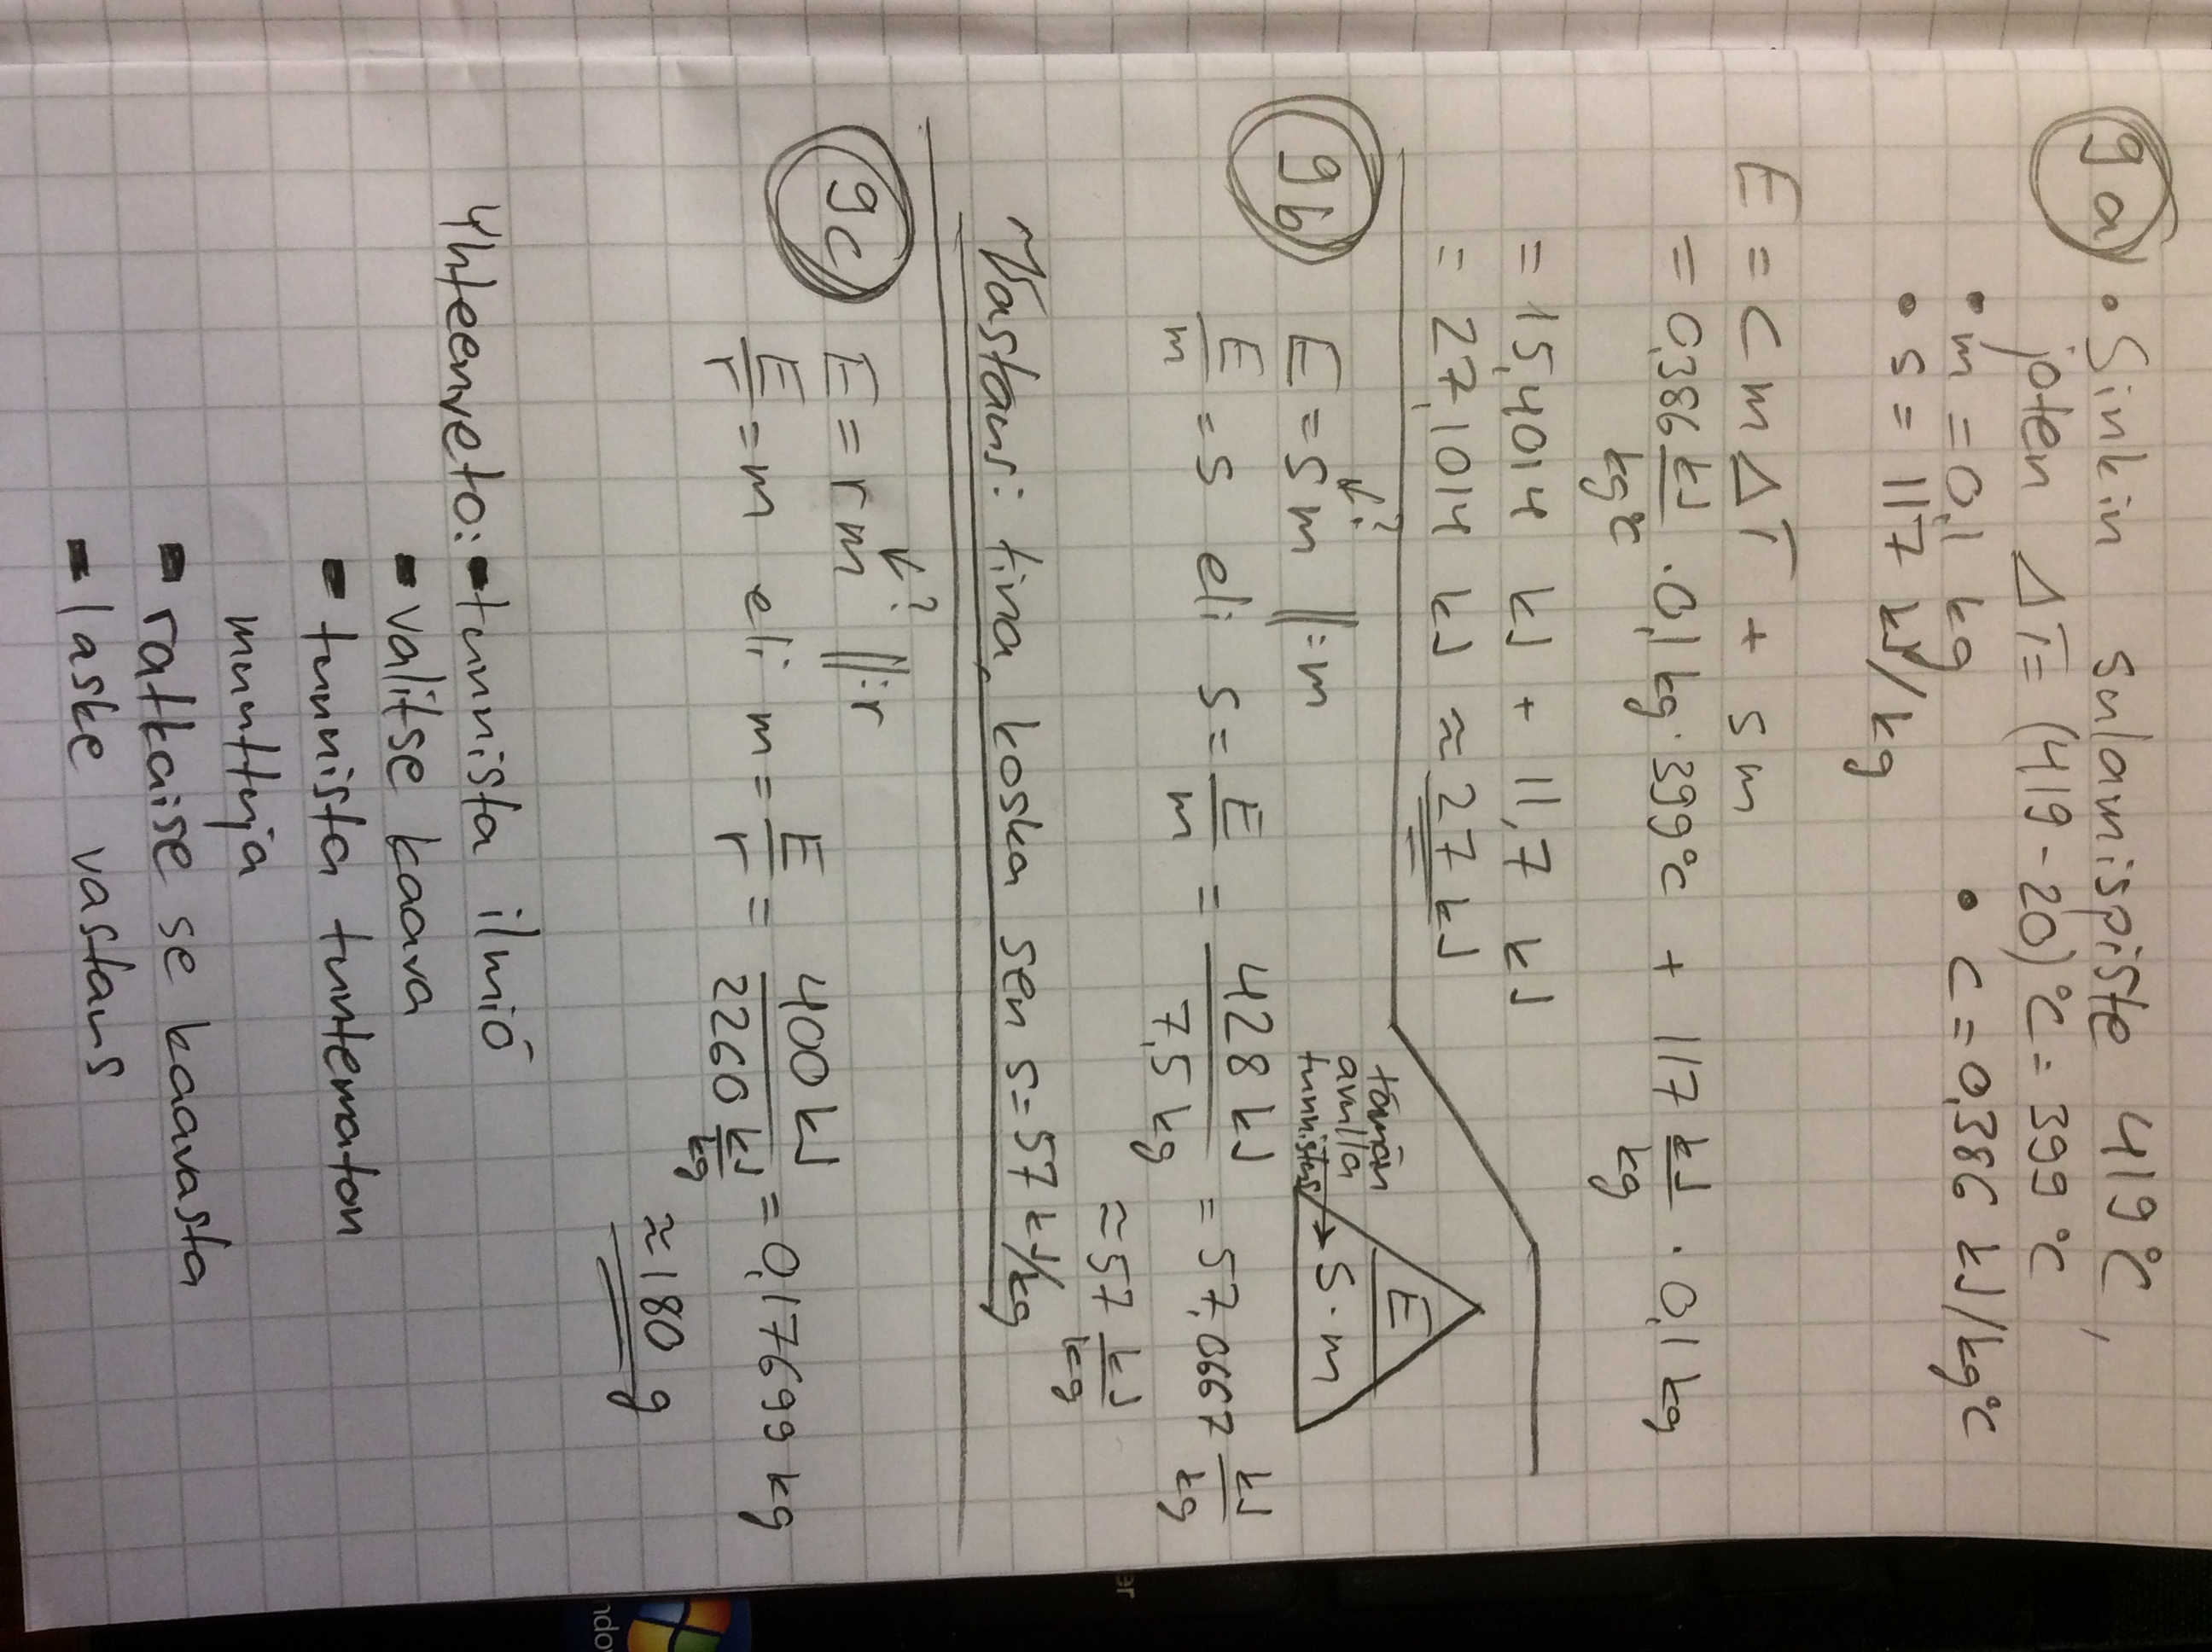 9a • Sinkin sulamispiste 419°C,
joten ΔT= (419-20)°C = 399°C
• m = 0,1 kg • c = 0,386 kJ/kg°C
• s = 117 kJ/kg
E = c m ΔT + s m
= 0,386 kJ/kg°C · 0,1 kg · 399°C + 117 kJ/kg · 0,1 kg
= 15,4014 kJ + 11,7 kJ
= 27,1014 kJ ≈ 27 kJ
9b E = s m ||:m
?
E/m = s eli s = E/m = 428 kJ / 7,5 kg = 57,0667 kJ/kg
≈ 57 kJ/kg
tämän
avulla
tunnistus
E
s · m
Vastaus: tina, koska sen s = 57 kJ/kg
9c E = r m ||:r
?
E/r = m eli m = E/r = 400 kJ / 2260 kJ/kg = 0,17699 kg
≈ 180 g
Yhteenveto: - tunnista ilmiö
- valitse kaava
- tunnista tuntematon
muuttuja
- ratkaise se kaavasta
- laske vastaus